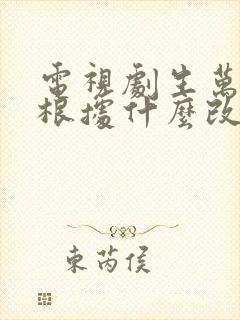 電視劇生萬
根據什麼改
東芮侯